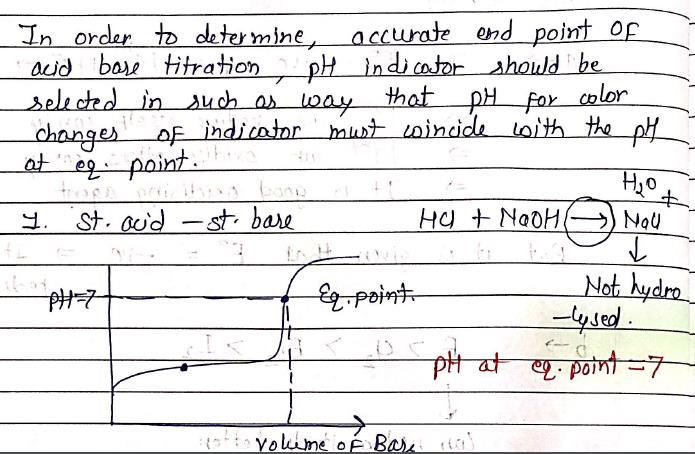 In order to determine, accurate end point of
acid base titration, pH indicator should be
selected in such as way that pH for color
changes of indicator must coincide with the pH
at eq. point.
H₂O +
1. St. acid – st. base HCl + NaOH → NaCl
↓
pH=7 Eq. point. Not hydro
-lysed.
pH at eq. point = 7
volume of Base